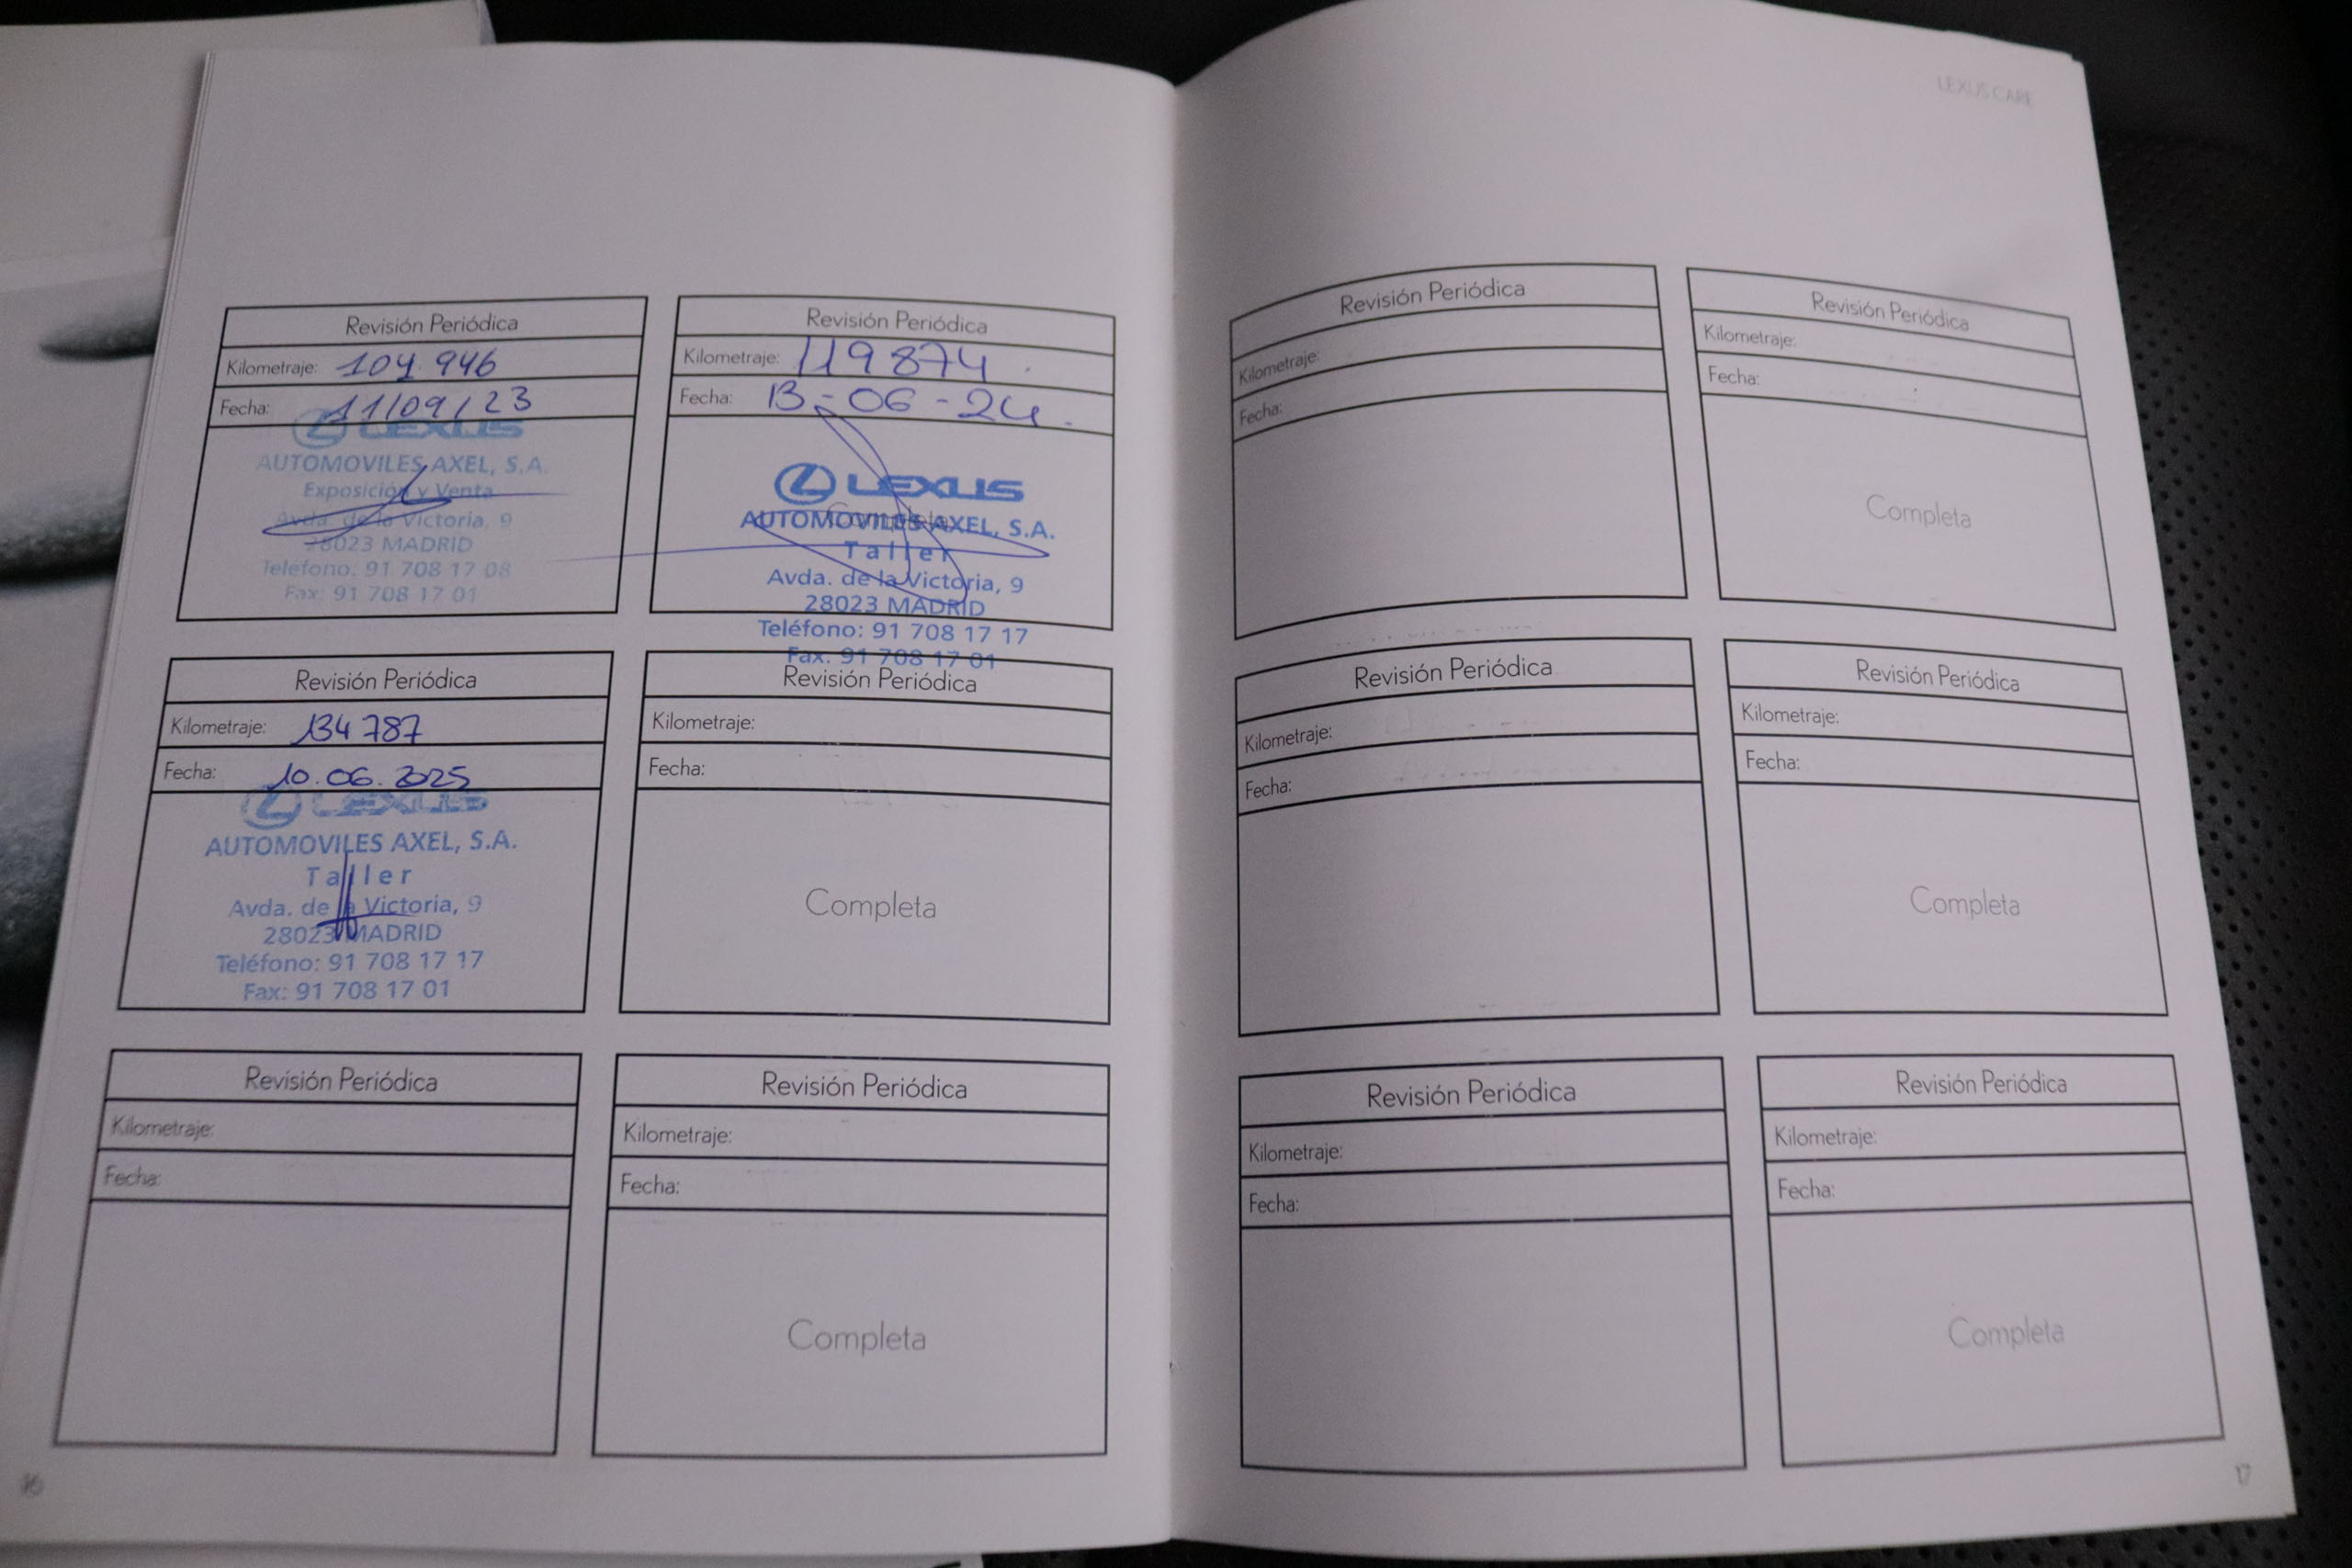 LEXUS CARE
Revisión Periódica
Kilometraje: 104.946
Fecha: 11/09/23
LEXUS
AUTOMOVILES AXEL, S.A.
Exposición y Venta
Avda. de la Victoria, 9
28023 MADRID
Teléfono: 91 708 17 08
Fax: 91 708 17 01
Revisión Periódica
Kilometraje: 119874
Fecha: 13-06-24.
LEXUS
Completa
AUTOMOVILES AXEL, S.A.
Taller
Avda. de la Victoria, 9
28023 MADRID
Teléfono: 91 708 17 17
Fax. 91 708 17 01
Revisión Periódica
Kilometraje: 134787
Fecha: 10.06.2025
LEXUS
AUTOMOVILES AXEL, S.A.
Taller
Avda. de la Victoria, 9
28023 MADRID
Teléfono: 91 708 17 17
Fax: 91 708 17 01
Revisión Periódica
Kilometraje:
Fecha:
Completa
Revisión Periódica
Kilometraje:
Fecha:
Revisión Periódica
Kilometraje:
Fecha:
Completa
16
Revisión Periódica
Kilometraje:
Fecha:
Revisión Periódica
Kilometraje:
Fecha:
Completa
Revisión Periódica
Kilometraje:
Fecha:
Revisión Periódica
Kilometraje:
Fecha:
Completa
Revisión Periódica
Kilometraje:
Fecha:
Revisión Periódica
Kilometraje:
Fecha:
Completa
17